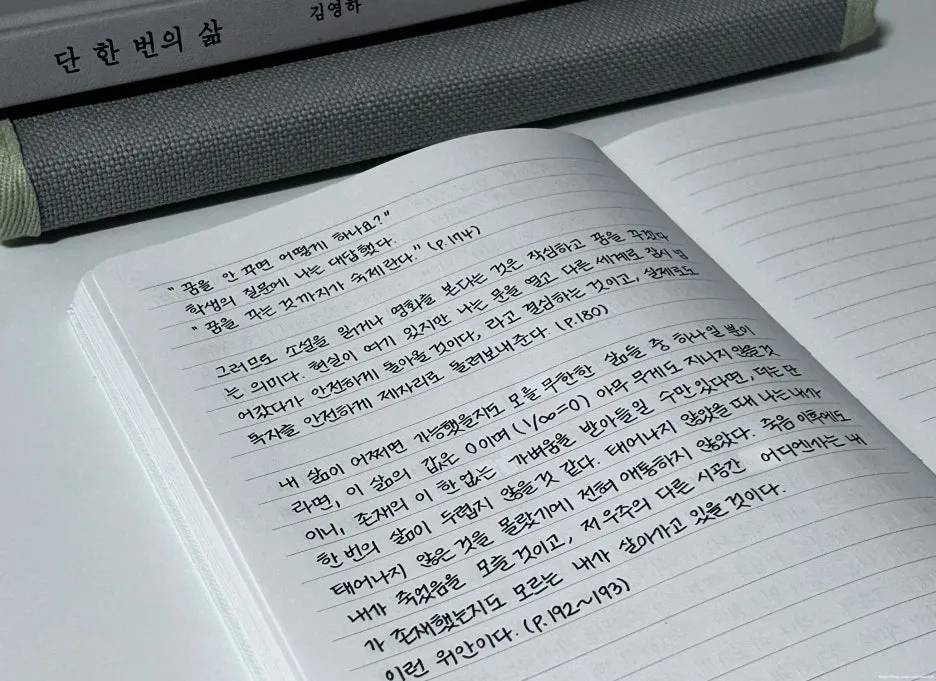 단 한 번의 삶
김영하
"꿈을 안 꾸면 어떻게 하나요?"
학생의 질문에 나는 대답했다.
"꿈을 꾸는 것까지가 숙제란다." (p.174)
그러므로 소설을 읽거나 영화를 본다는 것은 작심하고 꿈을 꾸겠다
는 의미다. 현실이 여기 있지만 나는 문을 열고 다른 세계로 잠시 넘
어갔다가 안전하게 돌아올 것이다, 라고 결심하는 것이고, 실제로도
독자를 안전하게 제자리로 돌려보내준다. (p.180)
내 삶이 어쩌면 가능했을지도 모를 무한한 삶들 중 하나일 뿐이
라면, 이 삶의 값은 0이며 (1/∞=0) 아무 무게도 지나지 않을것
이니, 존재의 이 한없는 가벼움을 받아들일 수만 있다면, 더는 단
한 번의 삶이 두렵지 않을 것 같다. 태어나지 않았을 때 나는 내가
태어나지 않은 것을 몰랐기에 전혀 애통하지 않았다. 죽음 이후에도
내가 죽었음을 모를 것이고, 저 우주의 다른 시공간 어디엔가는 내
가 존재했는지도 모르는 내가 살아가고 있을 것이다.
이런 위안이다. (p.192~193)